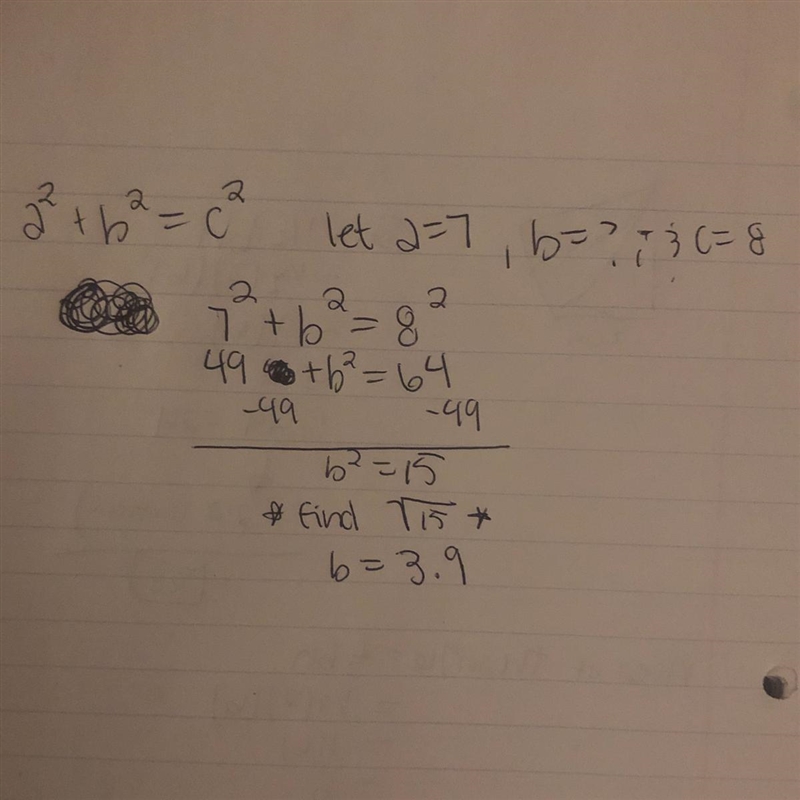 a² + b² = c² let a=7, b=?, & c=8
7² + b² = 8²
49 + b² = 64
-49 -49
b² = 15
* find √15 *
b = 3.9